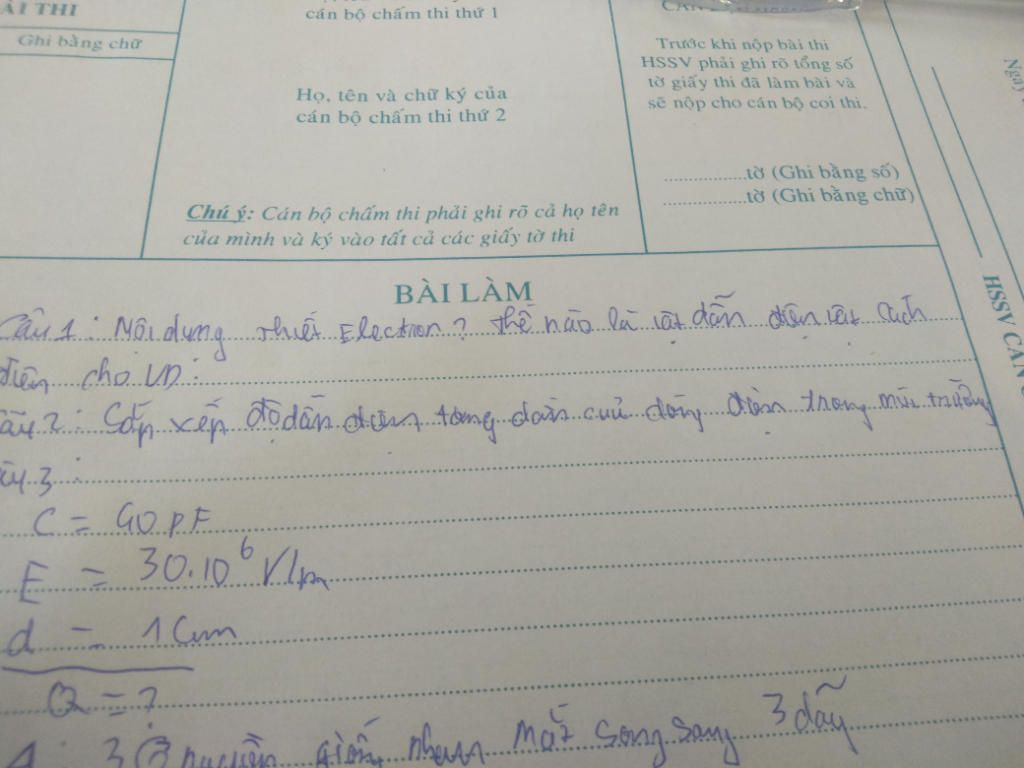 ÀI THI
Ghi bằng chữ
cán bộ chấm thi thứ 1
Họ, tên và chữ ký của
cán bộ chấm thi thứ 2
Chú ý: Cán bộ chấm thi phải ghi rõ cả họ tên
của mình và ký vào tất cả các giấy tờ thi
Trước khi nộp bài thi
HSSV phải ghi rõ tổng số
tờ giấy thi đã làm bài và
sẽ nộp cho cán bộ coi thi.
................tờ (Ghi bằng số)
................tờ (Ghi bằng chữ)
HSSV
BÀI LÀM
Câu 1: Nội dung thuết Election? thế nào là vật dẫn điện vật cách
điện cho VD:
câu 2: Sắp xếp độ dẫn điện tăng dần của dòng điện trong môi trường
câu 3:
C = 40 pF
E = 30.10⁶ V/m
d = 1 cm
Q = ?
3 nguồn giống nhau mắc song song 3 dãy